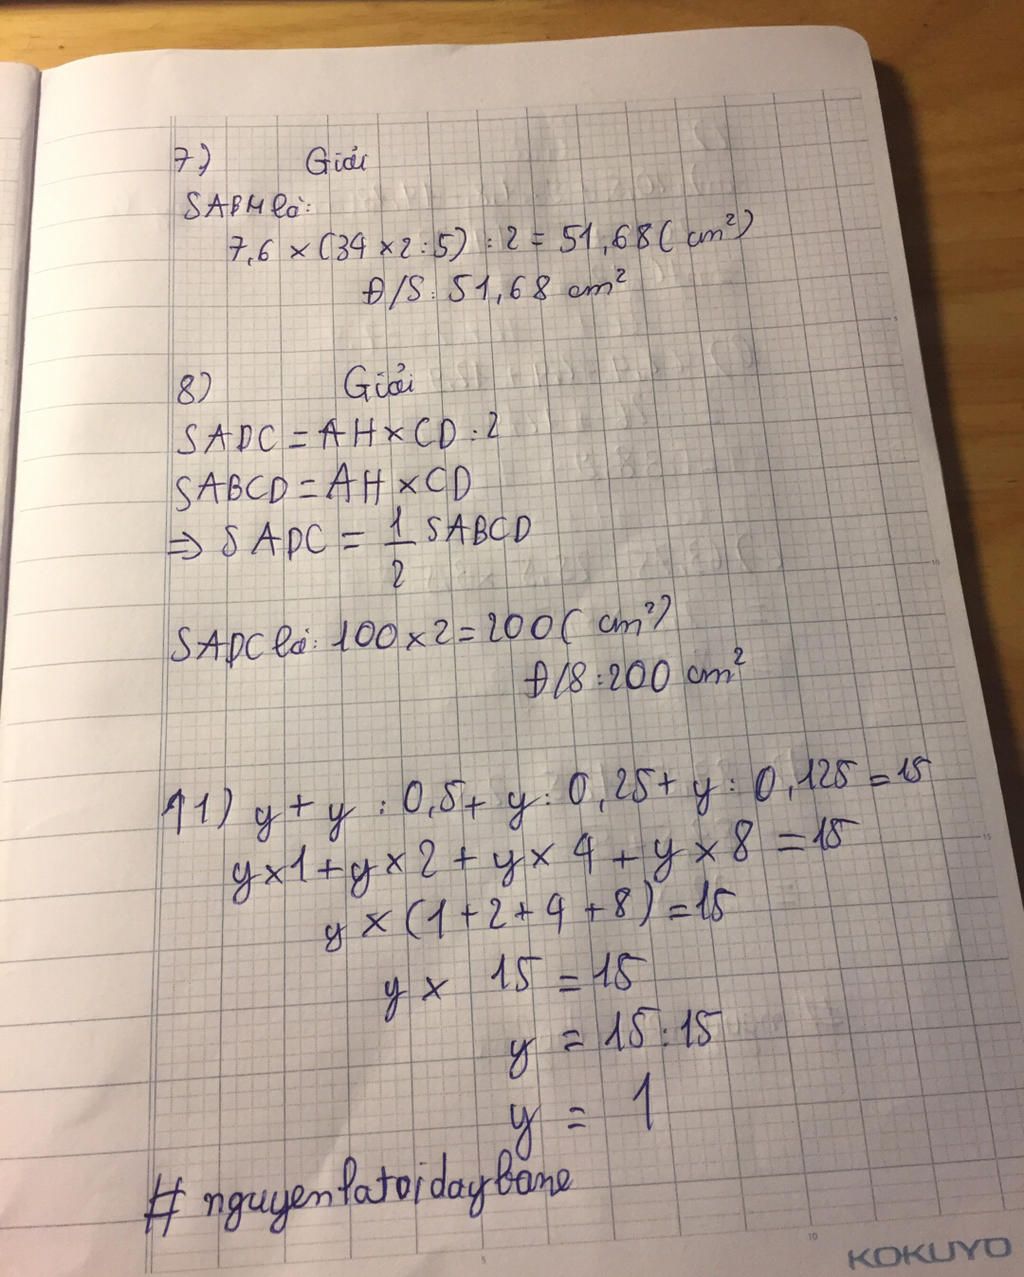 7) Giải
SABM là:
7,6 × (34 × 2 : 5) : 2 = 51,68 (cm²)
Đ/S: 51,68 cm²
8) Giải
SADC = AH × CD : 2
SABCD = AH × CD
⇒ SADC = 1/2 SABCD
SADC là: 100 × 2 = 200 (cm²)
Đ/S: 200 cm²
11) y + y : 0,5 + y : 0,25 + y : 0,125 = 15
y × 1 + y × 2 + y × 4 + y × 8 = 15
y × (1 + 2 + 4 + 8) = 15
y × 15 = 15
y = 15 : 15
y = 1
# nguyenlatoidaybane
5
10
15
5
10
KOKUYO